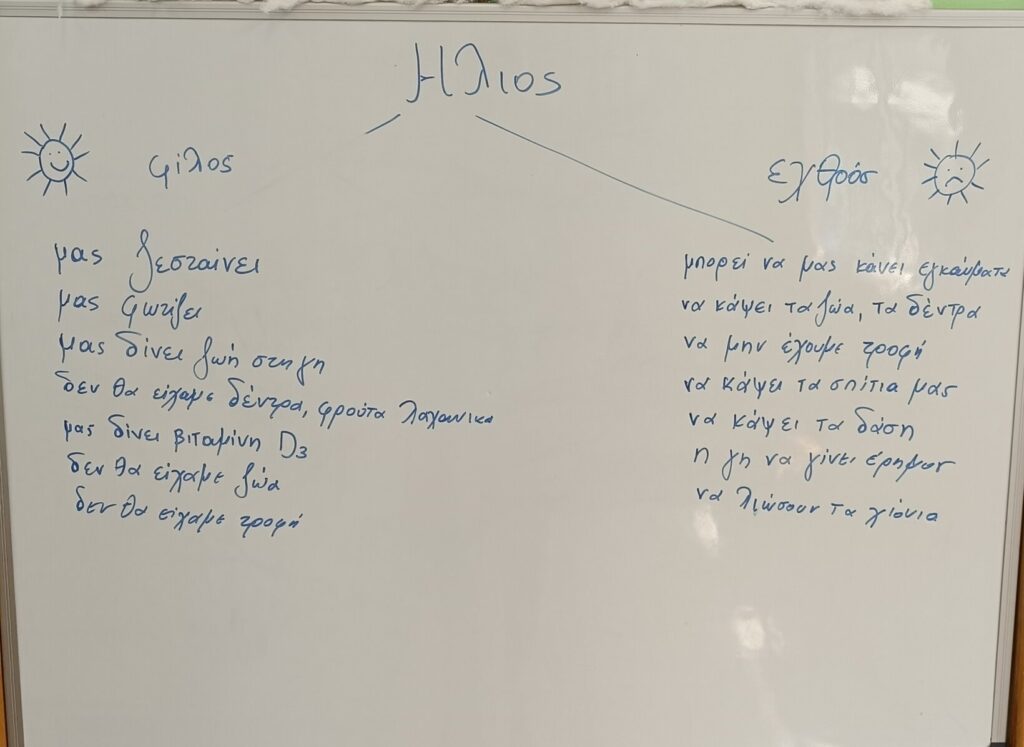 Ηλιος
φίλος
μας ζεσταίνει
μας φωτίζει
μας δίνει ζωή στη γη
δεν θα είχαμε δέντρα, φρούτα λαχανικα
μας δίνει βιταμίνη D3
δεν θα είχαμε ζώα
δεν θα είχαμε τροφή
εχθρός
μπορεί να μας κάνει εγκαύματα
να κάψει τα ζώα, τα δέντρα
να μην έχουμε τροφή
να κάψει τα σπίτια μας
να κάψει τα δάση
η γη να γίνει έρημος
να λιώσουν τα χιόνια